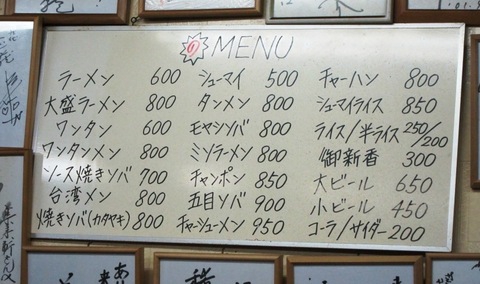 の MENU
ラーメン 600
大盛ラーメン 800
ワンタン 600
ワンタンメン 800
ソース焼きソバ 700
台湾メン 800
焼きソバ(カタヤキ) 800
シューマイ 500
タンメン 800
モヤシソバ 800
ミソラーメン 800
チャンポン 850
五目ソバ 900
チャーシューメン 950
チャーハン 800
シューマイライス 850
ライス/半ライス 250/200
御新香 300
大ビール 650
小ビール 450
コーラ/サイダー 200